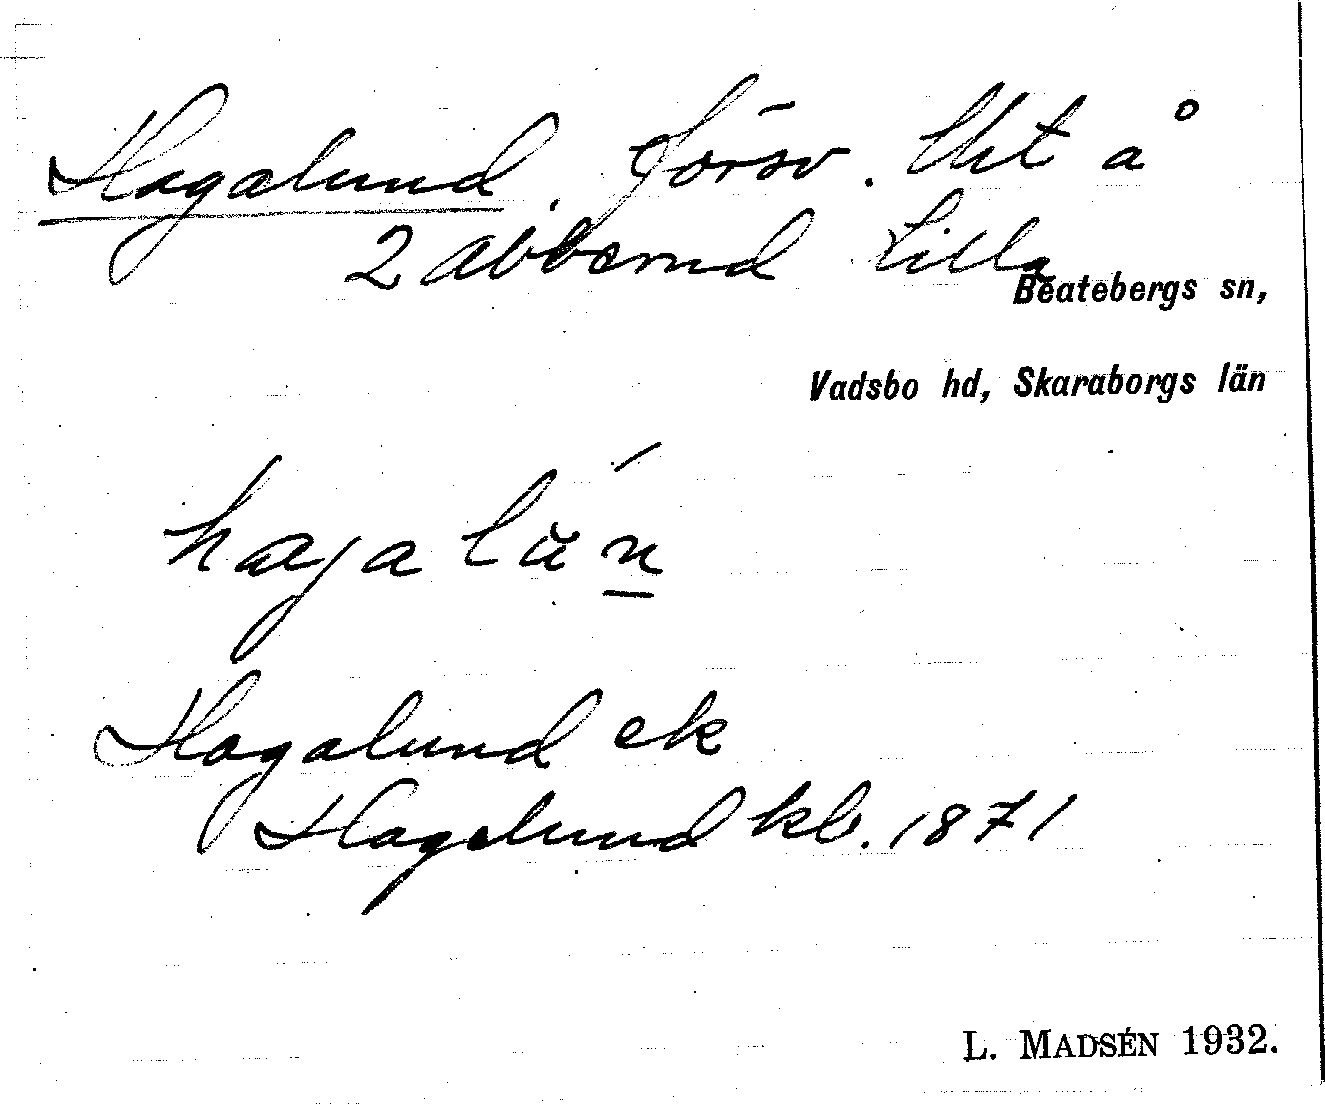 Hagalund. försv. lht å
2 Abberud Lilla
Beatebergs sn,
Vadsbo hd, Skaraborgs län
hagalún
Hagalund ek
Hagalund kb. 1871
L. MADSÉN 1932.